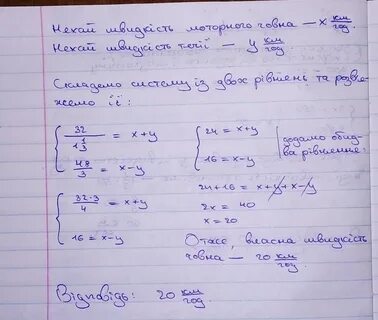 Нехай швидкість моторного човна — x км/год.
Нехай швидкість течії — y км/год
Складемо систему із двох рівнянь та розв'я-
жемо її:
{ 32 / 1 1/3 = x+y
48/3 = x-y
{ 24 = x+y
16 = x-y | додамо обид-
ва рівняння:
{ 32·3/4 = x+y
16 = x-y
24+16 = x+y+x-y
2x = 40
x = 20
Отже, власна швидкість
човна — 20 км/год.
Відповідь: 20 км/год.